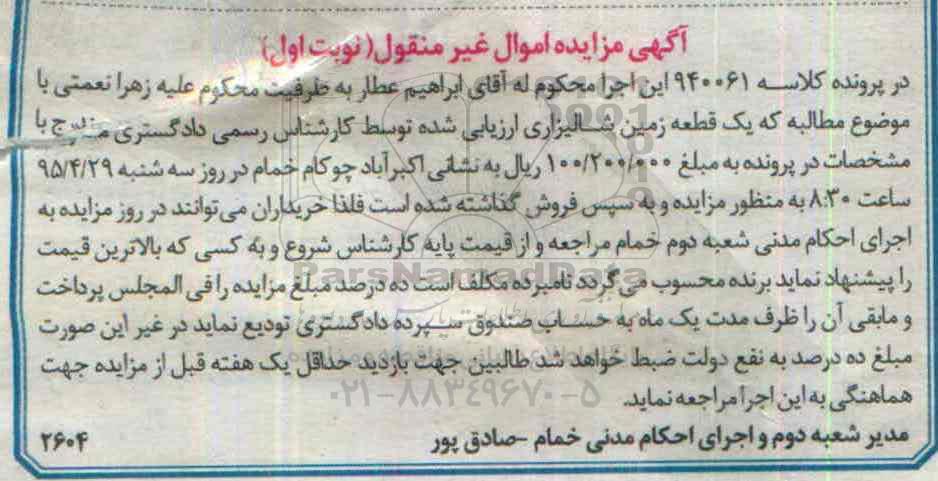 آگهی مزایده اموال غیر منقول (نوبت اول)
در پرونده کلاسه ۹۴۰۰۶۱ این اجرا محکوم له آقای ابراهیم عطار به طرفیت محکوم علیه زهرا نعمتی با
موضوع مطالبه که یک قطعه زمین شالیزاری ارزیابی شده توسط کارشناس رسمی دادگستری با
مشخصات در پرونده به مبلغ ۱۰۰/۲۰۰/۰۰۰ ریال به نشانی اکبرآباد چوکام خمام در روز سه شنبه ۹۵/۴/۲۹
ساعت ۸:۳۰ به منظور مزایده و به سپس فروش گذاشته شده است فلذا خریداران می‌توانند در روز مزایده به
اجرای احکام مدنی شعبه دوم خمام مراجعه و از قیمت پایه کارشناس شروع و به کسی که بالاترین قیمت
را پیشنهاد نماید برنده محسوب می‌گردد نامبرده مکلف است ده درصد مبلغ مزایده را فی المجلس پرداخت
و مابقی آن را ظرف مدت یک ماه به حساب صندوق سپرده دادگستری تودیع نماید در غیر این صورت
مبلغ ده درصد به نفع دولت ضبط خواهد شد طالبین جهت بازدید حداقل یک هفته قبل از مزایده جهت
هماهنگی به این اجرا مراجعه نماید.
مدیر شعبه دوم و اجرای احکام مدنی خمام -صادق پور
۲۶۰۴
ParsNamadData
۰۲۱-۸۸۳۴۹۶۷۰-۵